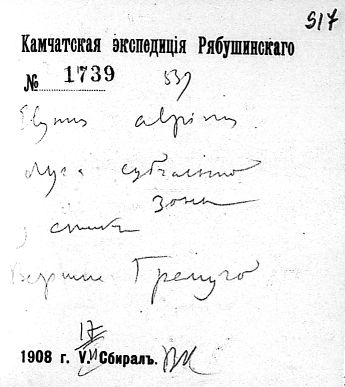 517
Камчатская экспедиція Рябушинскаго
№ 1739
Elymus alpinus
Луга субальпийской
зоны
Вершина Гремуча
17
1908 г. VII. Сбиралъ. ВК